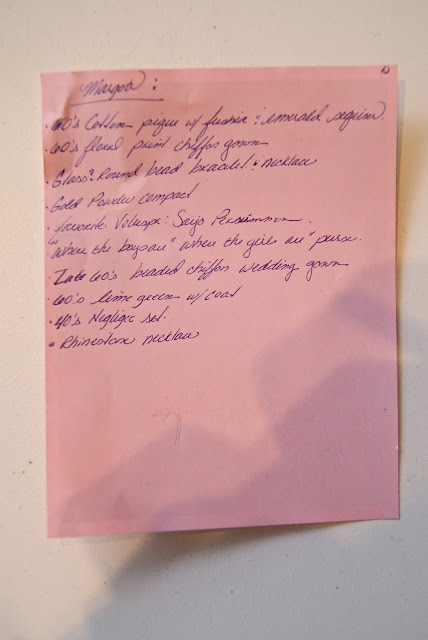 Margot:
· 60's Cotton pique w/ fushia & emerald sequins.
· 60's floral print chiffon gown
· Glass & Round bead bracelet & necklace
· Gold Powder compact
· favorite Voluspa: Saijo Persimmon.
· "Where the boys are" "where the girls are" purse.
· Late 60's beaded chiffon wedding gown
· 60's lime green w/ coat
· 40's Negligee set.
· Rhinestone necklace